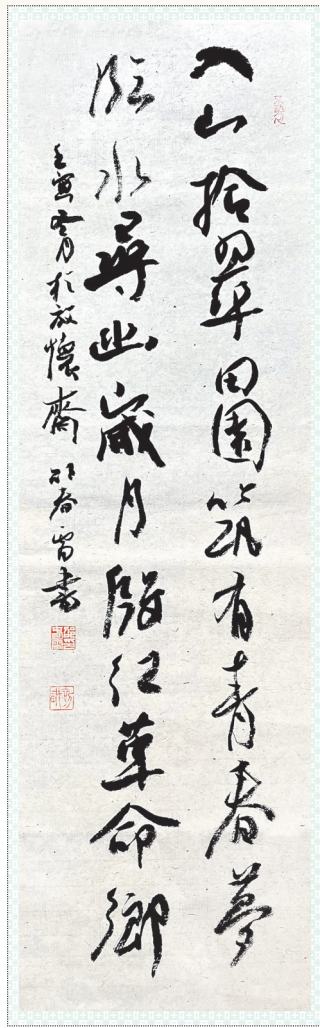 入山拾翠田園筑有青春夢
臨水尋幽歲月殷紅革命鄉
壬寅冬月於放懷齋 春雷書